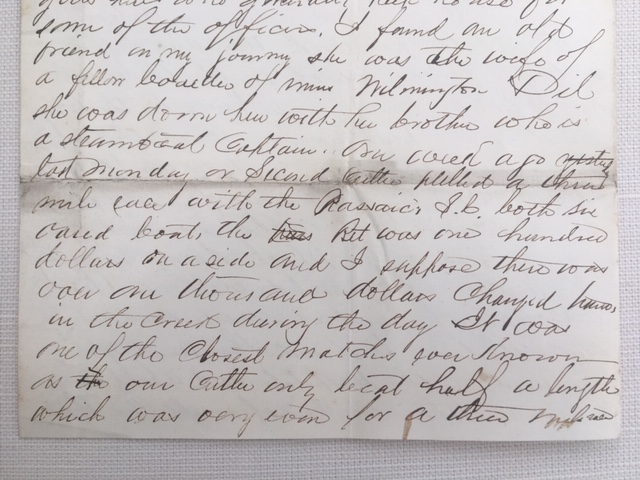 some of the officers. I found an old
friend in my journy she was the wife of
a fellow boarder of mine Wilmington Del
she was down her with her brother who is
a steamboat Captain. One week ago
last Munday our Second Cutter pulled a three
mile race with the Passaic's I.b. both six
oared boats the bet was one hundred
dollars on a side and I suppose there was
over one thousand dollars changed hands
in the Creek during the day It was
one of the Closest matches ever known
as our Cutter only beat half a length
which was very even for a three mile race